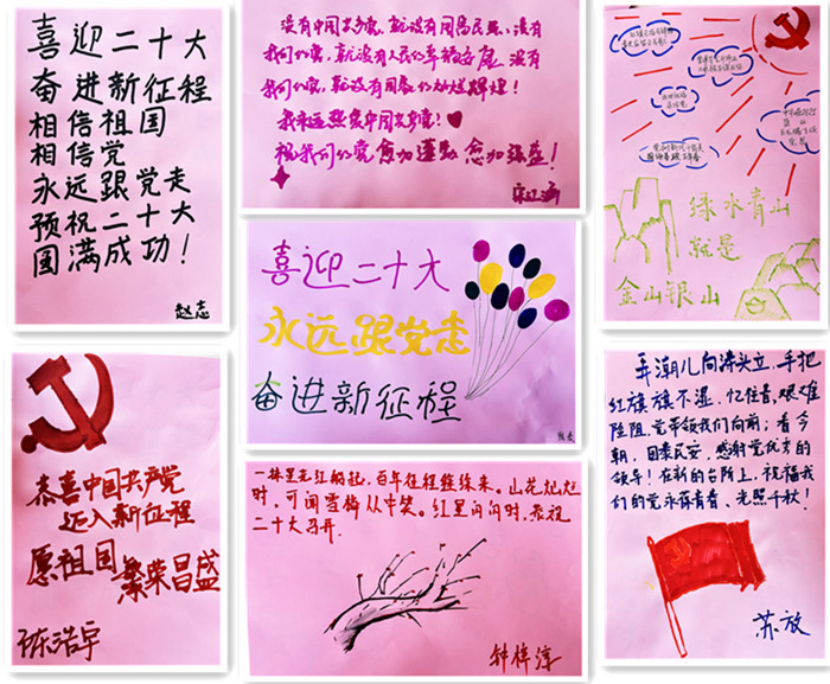 喜迎二十大
奋进新征程
相信祖国
相信党
永远跟党走
预祝二十大
圆满成功！
赵志
没有中国共产党，就没有国富民强，没有
我们的党，就没有人民的幸福安康，没有
我们的党，就没有国家的灿烂辉煌！
我永远热爱中国共产党！
祝我们的党愈加蓬勃愈加强盛！
绿水青山
就是
金山银山
喜迎二十大
永远跟党走
奋进新征程
恭喜中国共产党
迈入新征程
愿祖国
繁荣昌盛
陈浩宇
一抹星光红船起，百年征程继续来。山花灿烂
时，可闻雪梅从中笑。红星闪闪时，恭祝
二十大召开。
钟梓淳
弄潮儿向涛头立，手把
红旗旗不湿，忆往昔，艰难
险阻，党带领我们向前；看今
朝，国泰民安，感谢党优秀的
领导！在新的台阶上，祝福我
们的党永葆青春、光照千秋！
苏放